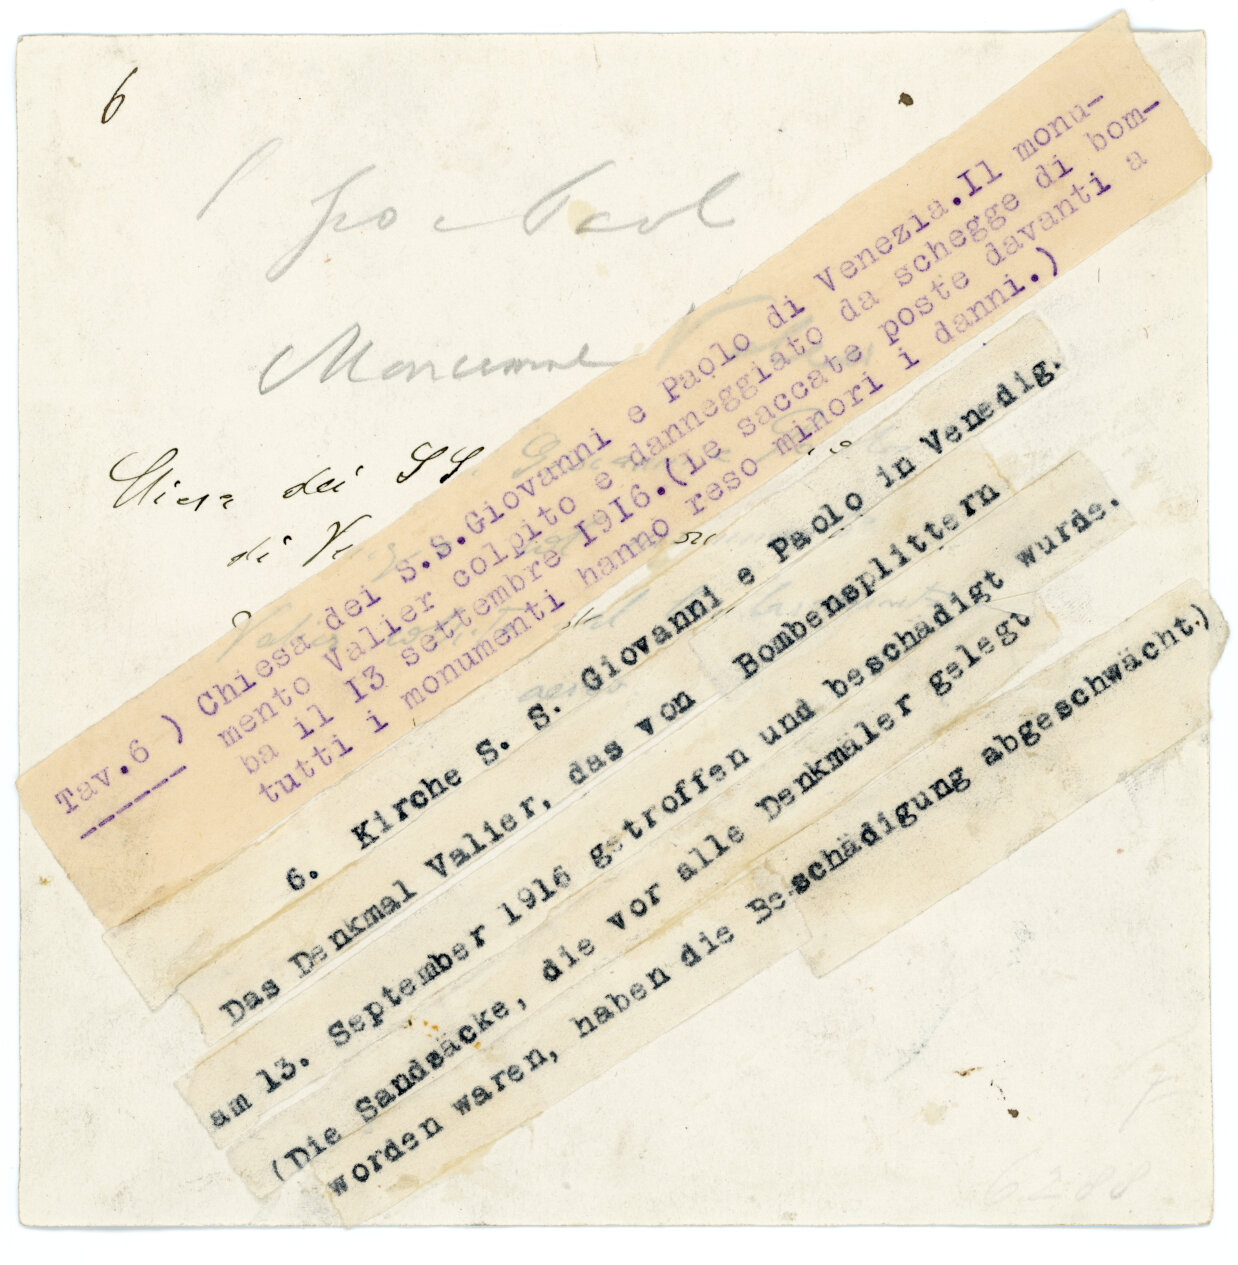 6
Gio e Paol
Monument
Chiesa dei SS
di Ve
Tav.6 ) Chiesa dei S.S.Giovanni e Paolo di Venezia.Il monu-
mento Valier colpito e danneggiato da schegge di bom-
ba il I3 settembre I9I6.(Le saccate poste davanti a
tutti i monumenti hanno reso minori i danni.)
6. Kirche S. S. Giovanni e Paolo in Venedig.
Das Denkmal Valier, das von Bombensplittern
am 13. September 1916 getroffen und beschädigt wurde.
(Die Sandsäcke, die vor alle Denkmäler gelegt
worden waren, haben die Beschädigung abgeschwächt.)